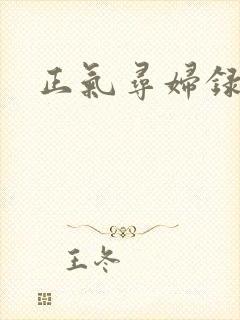 正氣尋婦録
王冬